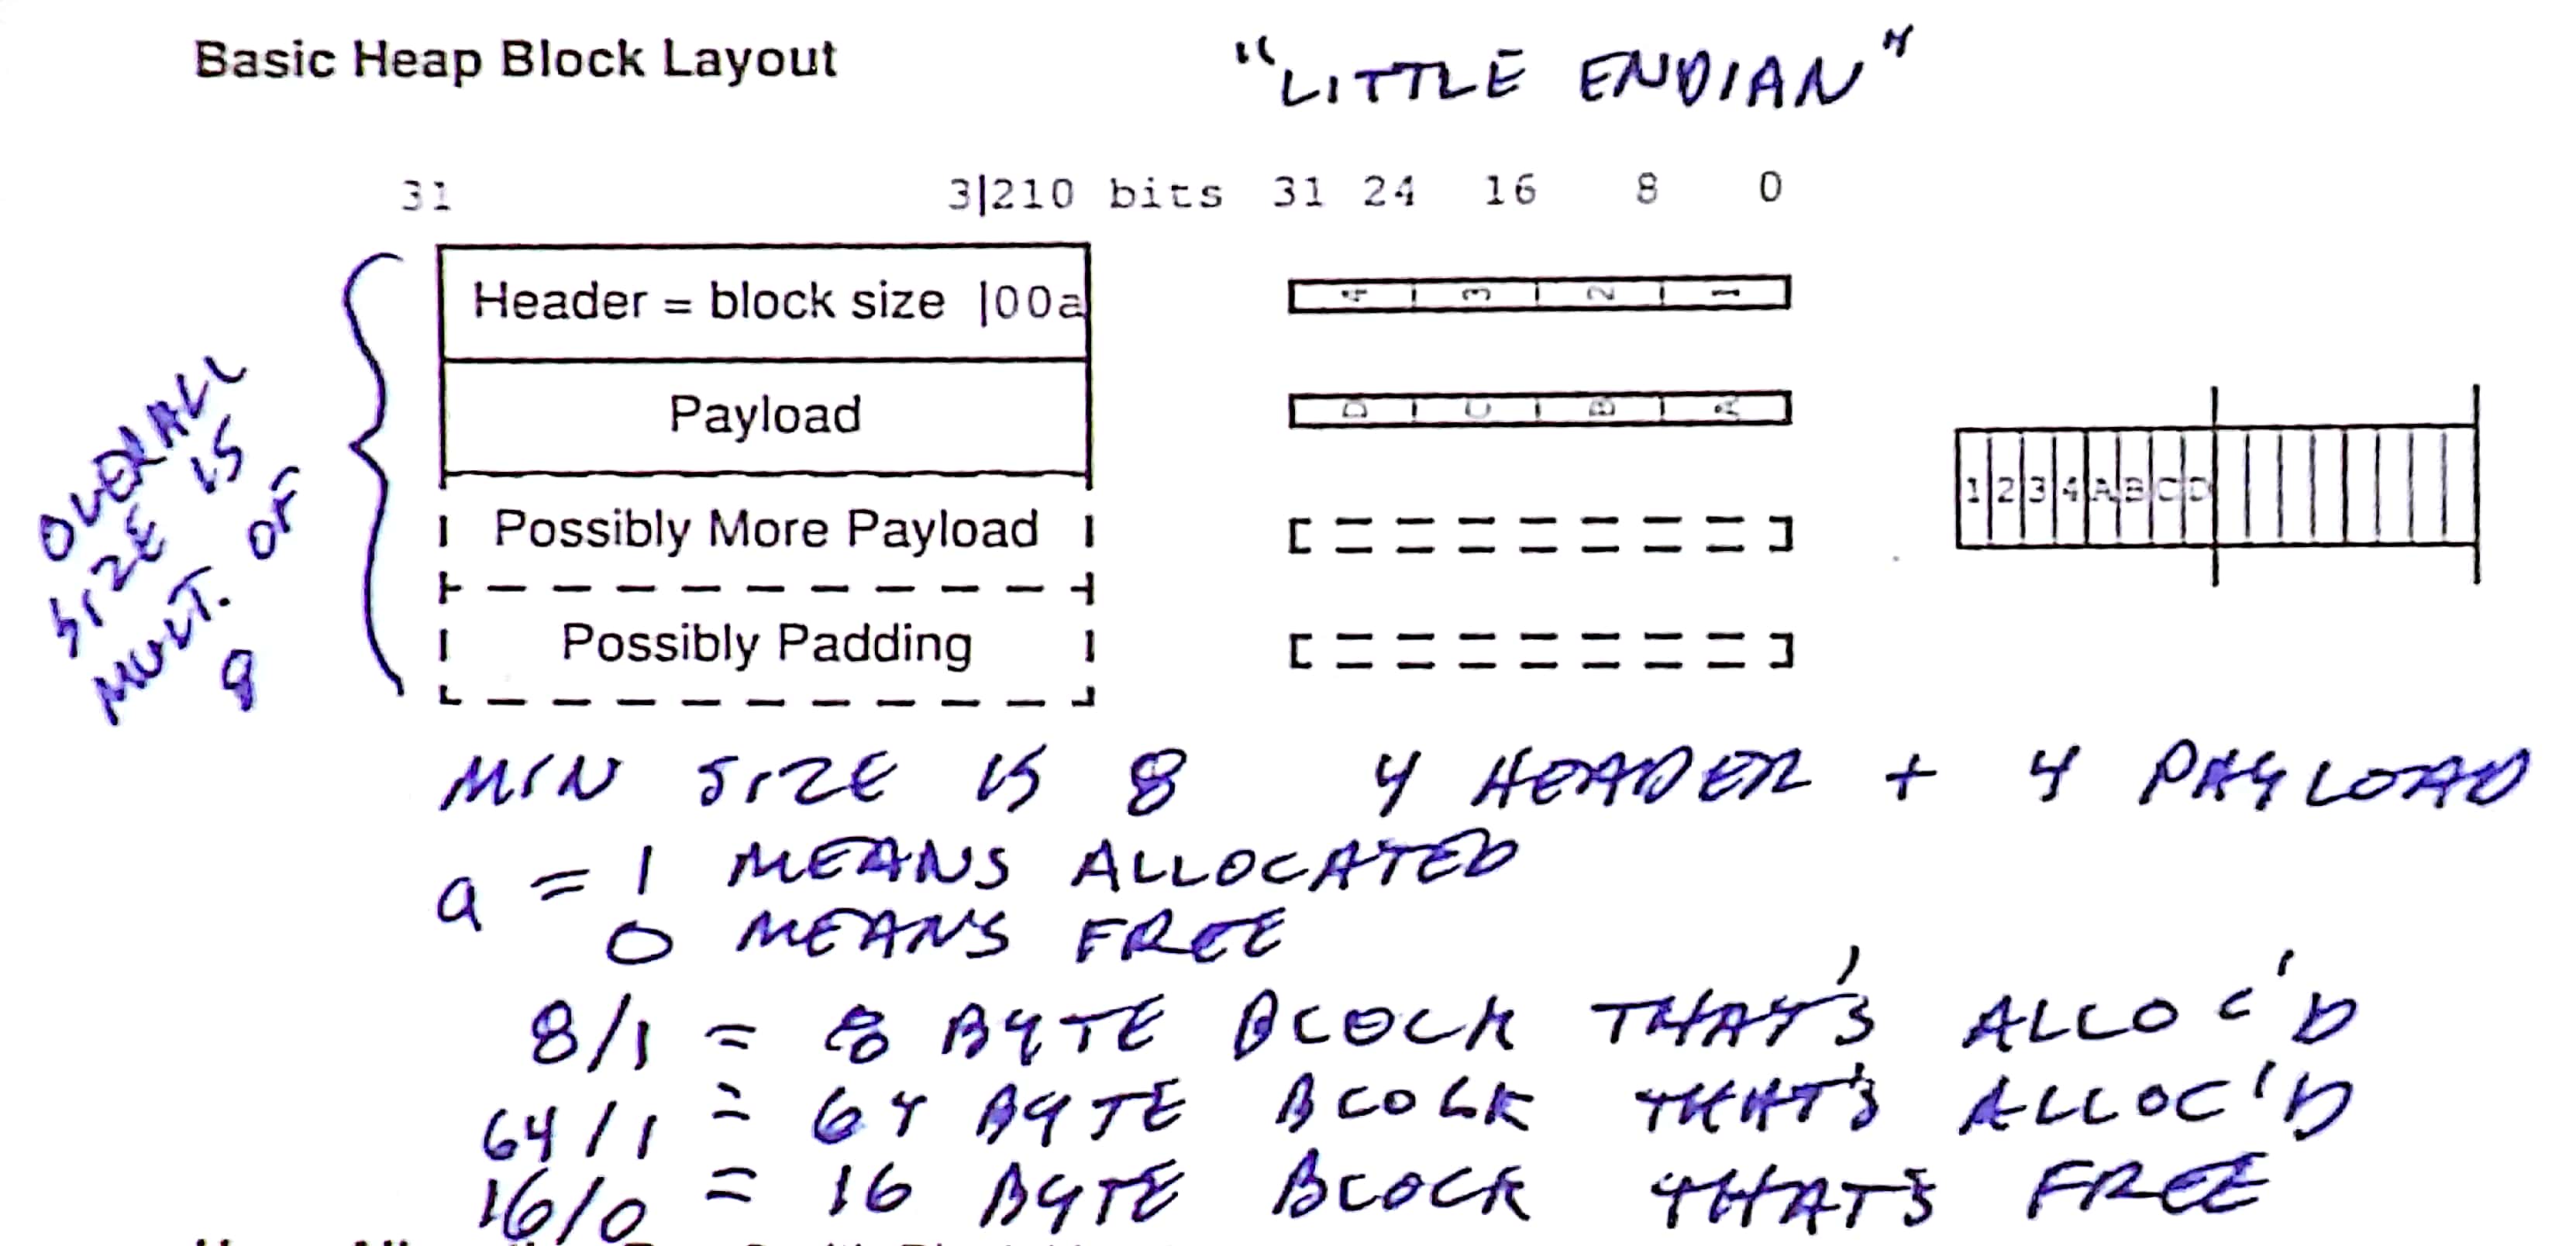 Basic Heap Block Layout
"LITTLE ENDIAN"
31 3|210 bits 31 24 16 8 0
Header = block size |00a
4 3 2 1
Payload
D C B A
1 2 3 4 A B C D
Possibly More Payload
Possibly Padding
OVERALL
SIZE IS
MULT. OF
8
MIN SIZE IS 8 4 HEADER + 4 PAYLOAD
a = 1 MEANS ALLOCATED
0 MEANS FREE
8/1 = 8 BYTE BLOCK THAT'S ALLOC'D
64/1 = 64 BYTE BLOCK THAT'S ALLOC'D
16/0 = 16 BYTE BLOCK THAT'S FREE